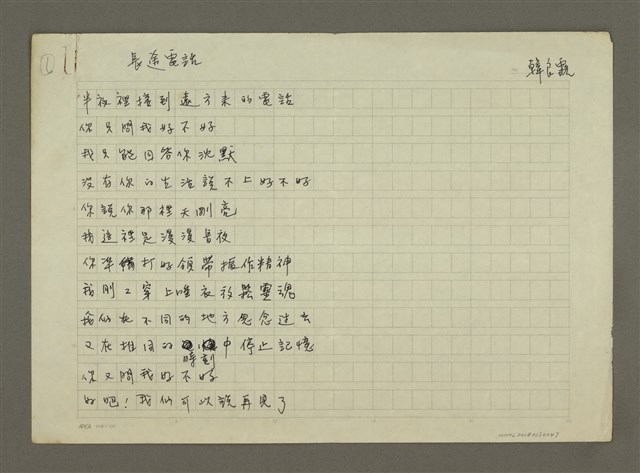 長途電話
韓良露
半夜裡接到遠方來的電話
你只問我好不好
我只能回答你沈默
沒有你的生活說不上好不好
你說你那裡天剛亮
我這裡是漫漫長夜
你準備打好領帶振作精神
我剛剛穿上睡衣放鬆靈魂
我們在不同的地方思念過去
又在相同的時刻中停止記憶
你又問我好不好
好吧！我們可以說再見了